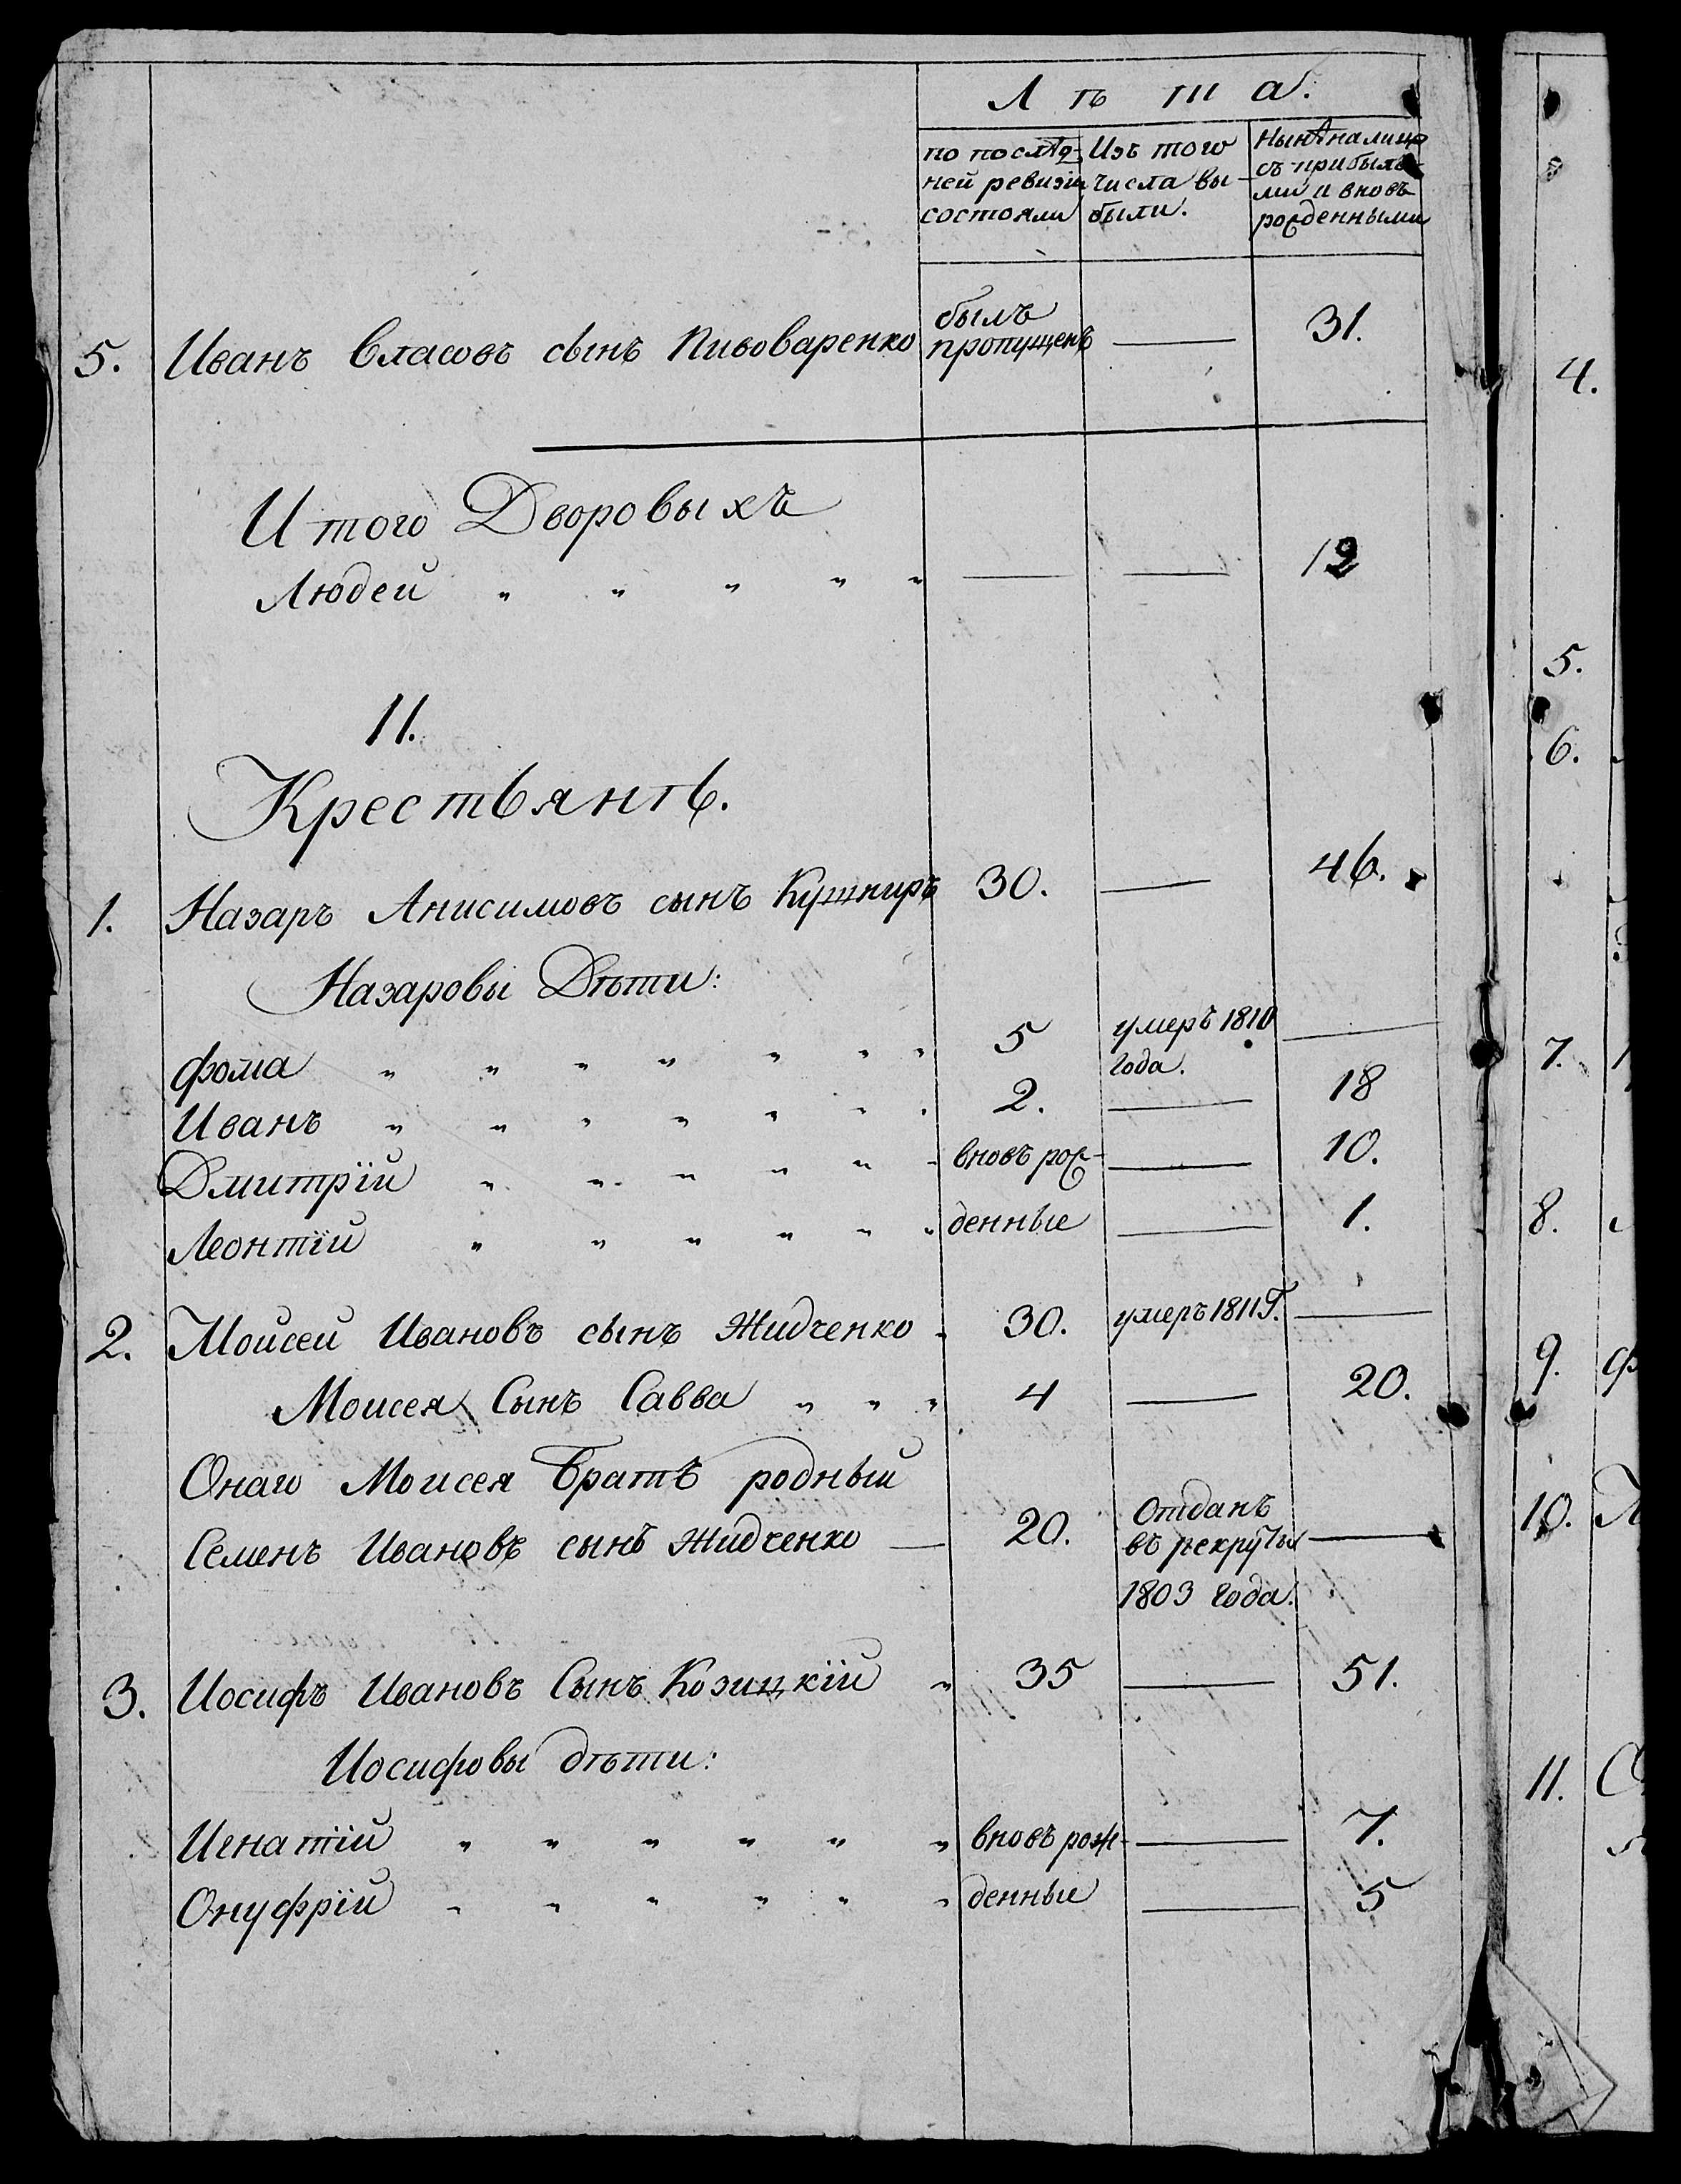 Лѣта.
по послѣд- Изъ того Нынѣ налицо
ней ревизіи числа вы- съ прибылы-
состояли были. ми и вновь
рожденными
былъ
5. Иванъ Власовъ сынъ Пивоваренко пропущенъ — 31.
Итого Дворовыхъ
Людей " " " " " — — 12
II.
Крестьянѣ.
1. Назаръ Анисимовъ сынъ Кушниръ 30. — 46.
Назаровы Дѣти:
Фома " " " " " " " 5 умеръ 1810 —
года.
Иванъ " " " " " " " 2. — 18
Дмитрій " " " " " " вновь рож- — 10.
Леонтій " " " " " " денные — 1.
2. Моисей Ивановъ сынъ Жидченко " 30. умеръ 1811 Г. —
Моисея Сынъ Савва " " " 4 — 20.
Онаго Моисея Братъ родный
Семенъ Ивановъ сынъ Жидченко — 20. Отданъ
въ рекруты —
1803 года.
3. Иосифъ Ивановъ Сынъ Козицкій " 35 — 51.
Иосифовы дѣти:
Игнатій " " " " " " вновь рож- — 7.
Онуфрій " " " " " " денные — 5
4.
5.
6.
7.
8.
9.
10.
11.